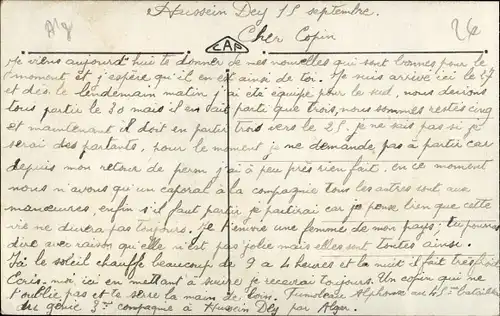 Alg
Hussein Dey 15 septembre.
26
Cher Copin
CAP
Je viens aujourd'hui te donner de mes nouvelles qui sont bonnes pour le
moment et j'espère qu'il en est ainsi de toi. Je suis arrivé ici le 27
et dès le lendemain matin j'ai été équipé pour le sud, nous devions
tous partir le 30 mais il en est parti que trois, nous sommes restés cinq
et maintenant il doit en partir trois vers le 25. je ne sais pas si je
serai des partants, pour le moment je ne demande pas à partir car
depuis mon retour de perm j'ai à peu près rien fait. en ce moment
nous n'avons qu'un caporal à la compagnie tous les autres sont aux
manœuvres, enfin s'il faut partir je partirai car je pense bien que cette
vie ne durera pas toujours. Je t'envoie une femme de mon pays; tu pourras
dire avec raison qu'elle n'est pas jolie mais elles sont toutes ainsi.
Ici le soleil chauffe beaucoup de 9 à 4 heures et la nuit il fait très
Ecris-moi ici en mettant à suivre je recevrai toujours. Un copin qui ne
t'oublie pas et te serre la main de loin. Alphonse au 45e bataillon
du génie 3e compagnie à Hussein Dey par Alger.